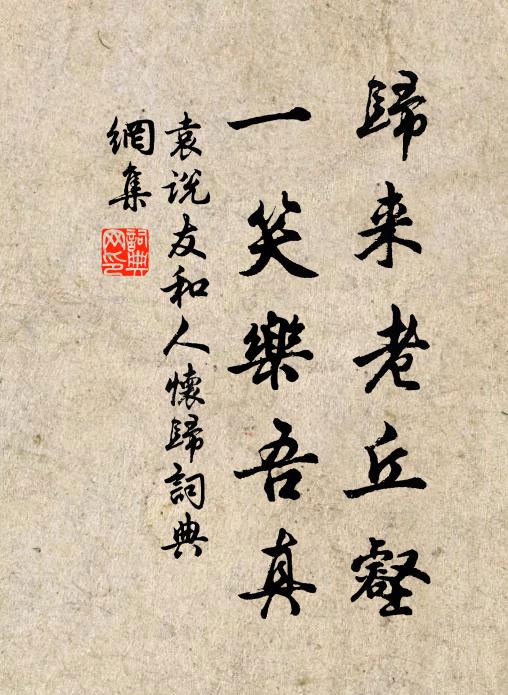 歸来老丘壑
一笑樂吾真
袁说友和人懷歸詞典
網集
詞典
网印